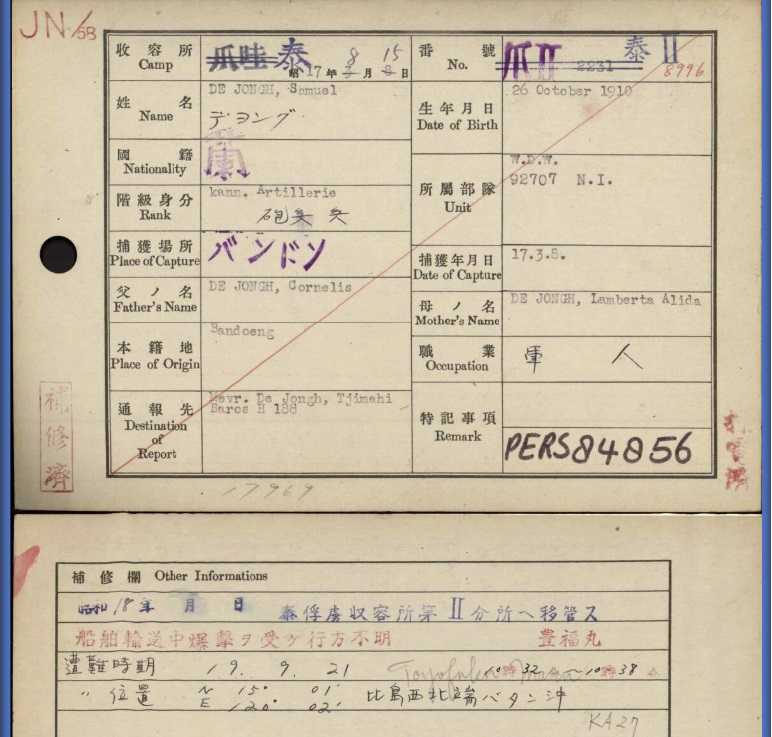 JN/58
收容所 Camp 爪哇 泰 昭 17年 8月 15日
番號 No. 爪II 2231 泰 II 8996
姓名 Name DE JONGH, Samuel
デヨング
生年月日 Date of Birth 26 October 1910
國籍 Nationality 蘭
階級身分 Rank kann. Artillerie
砲兵 兵
所屬部隊 Unit W.D.W.
92707 N.I.
捕獲場所 Place of Capture バンドン
捕獲年月日 Date of Capture 17.3.8.
父ノ名 Father's Name DE JONGH, Cornelis
母ノ名 Mother's Name DE JONGH, Lamberta Alida
本籍地 Place of Origin Bandoeng
職業 Occupation 軍人
通報先 Destination of Report Mevr. De Jongh, Tjimahi
Baros H 188
特記事項 Remark
PERS84856
補修濟
17969
補修欄 Other Informations
昭和18年 月 日 泰俘虜収容所第II分所ヘ移管ス
船舶輸送中爆撃ヲ受ケ行方不明 豊福丸
遭難時期 19. 9. 21 Toyofuku Maru 10時32分〜10時38分
〃 位置 N 15° 01' 比島西北端バタン沖
E 120° 02'
KA27